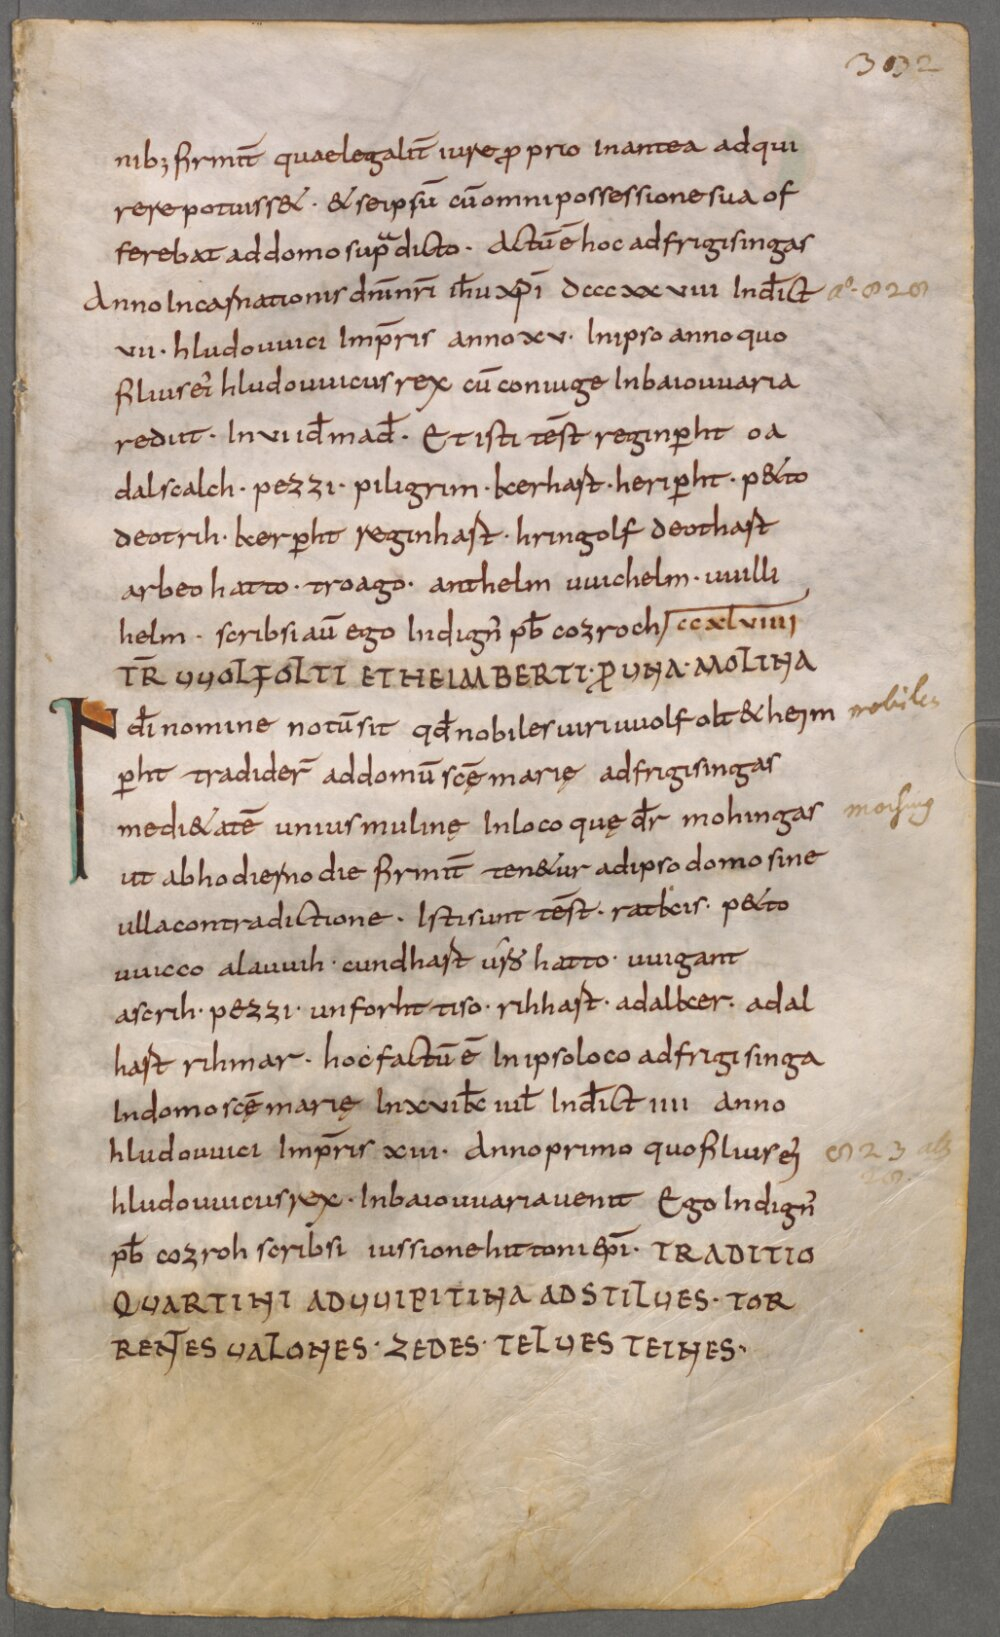 302
nib; firmit̄ quaelegalit̄ iure ꝓprio inantea adqui
rere potuiss& · & seipsū cūomni possessione sua of
ferebat ad domo sup̄dicto · Actū ē hoc ad frigisingas
Anno Incarnationis dn̄i nr̄i ih̄u xp̄i dcccxxviii Ind̄ict
aº · 828
vii · hludouuici Imp̄ris anno xv · In ipso anno quo
filius ei hludouuicus rex cū coniuge In baiouuaria
rediit · In vi id̄ mad̄ · Et isti tēst reginꝑht oa
dalscalch · pezzi · piligrim · kerhart · heriꝑht · p&to
deotrih · kerꝑht reginhart · hringolf deothart
arbeo hatto · troago · anthelm uuichelm · uuilli
helm · scribsi aū ego Indign̄ pb̄ cozroch ccxlviiii
TR̄ UUOLFOLTI ET HEIMBERTI · ꝓ UNA · MOLINA
IN dī nomine notū sit qd̄ nobiles uiri uuolfolt & heim
nobiles
ꝑht tradider̄ ad domū scę̄ marię ad frigisingas
medi&atē unius mulinę In loco quę dr̄ mohingas
moching
ut ab hodierno die firmit̄ ten&ur ad ipso domo sine
ulla contradictione · Isti sunt tēst · ratkis · p&to
uuicco alauuih · cundhart hatto · uuigant
ascrih · pezzi · unforht tiso · rihhart · adalker · adal
hart rihmar · hoc factū ē In ipso loco ad frigisinga
In domo scę̄ marię In xvi k̄ iul̄ Ind̄ict iiii Anno
hludouuici Imp̄ris xiii · Anno primo quo filius ei
823 als
28.
hludouuicus rex · In baiouuaria uenit Ego Indign̄
pb̄ cozroh scribsi iussione hittoni ep̄i · TRADITIO
QUARTINI AD UUIPITINA AD STILUES · TOR
RENTES UALONES · ZEDES · TELUES TEINES ·